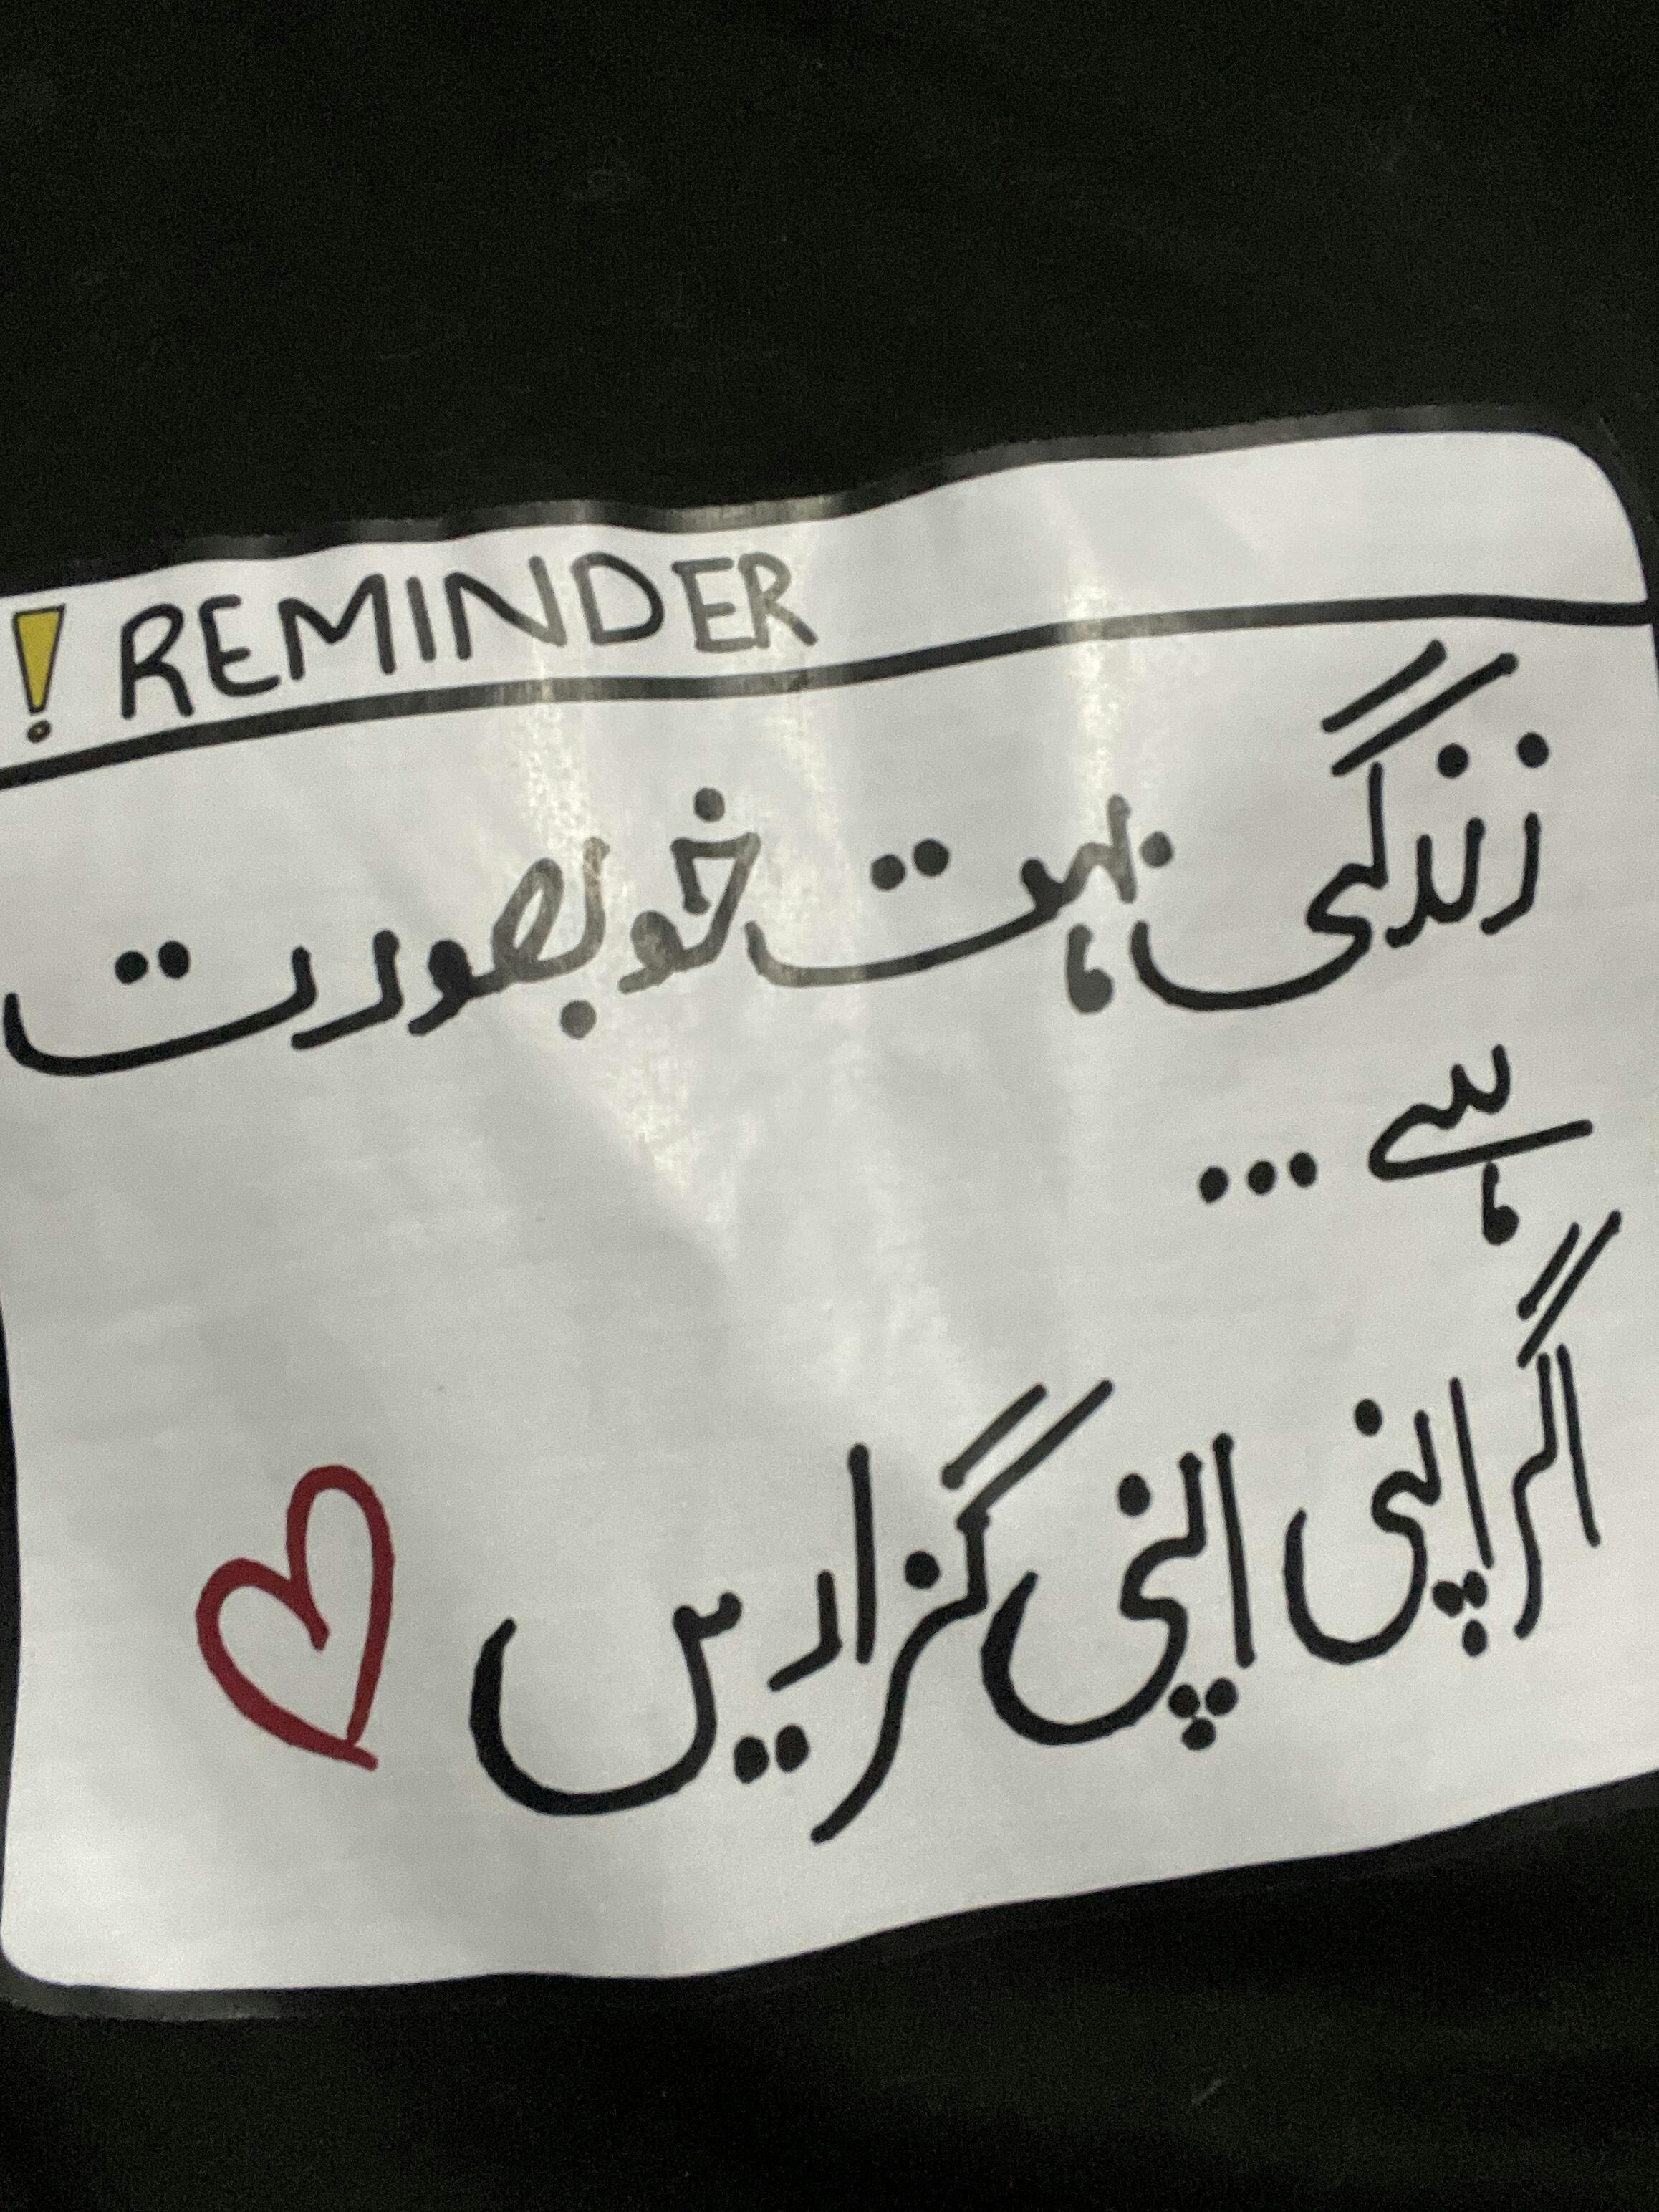 ! REMINDER
زندگی بہت خوبصورت
ہے ...
اگر اپنی اپنی گزاریں